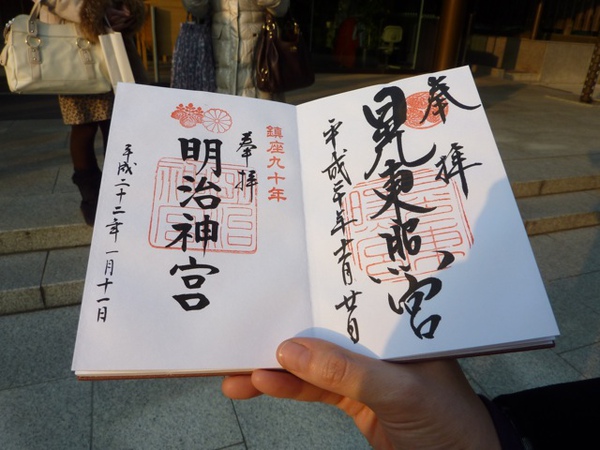 奉拝
日光東照宮
平成 年 月廿日
鎮座九十年
奉拝
明治神宮
平成二十二年一月十一日